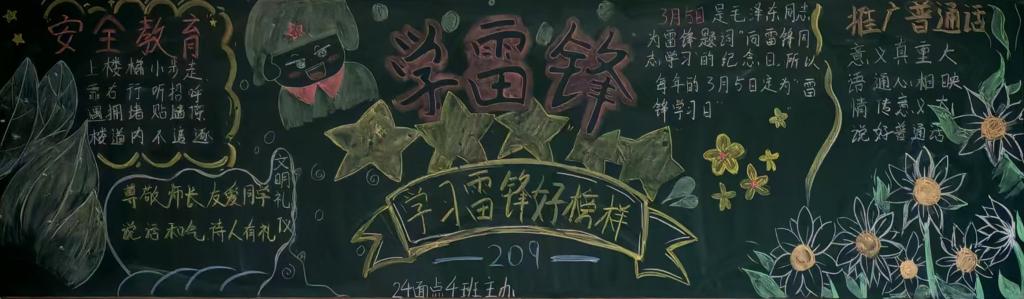 "安全教育"
上楼梯 小步走
靠右行 听招呼
遇拥堵 贴墙停
楼道内 不追逐
文明礼仪
尊敬师长 友爱同学
说话和气 待人有礼
学雷锋
学习雷锋好榜样
209
24面点4班主办
3月5日是毛泽东同志
为雷锋题词"向雷锋同
志学习"的纪念日,所以
每年的3月5日定为"雷
锋学习日"
推广普通话
意义真重大
语通心相映
情传意义
说好普通话